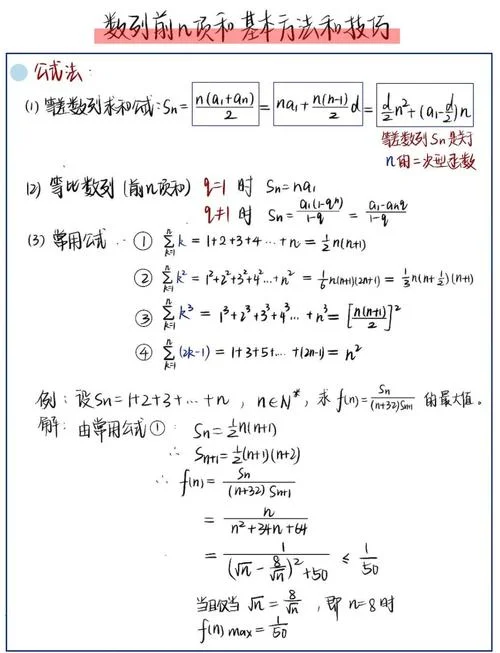 数列前n项和基本方法和技巧
公式法:
(1) 等差数列求和公式: Sn = n(a₁+an)/2 = na₁ + n(n-1)/2 d = d/2 n² + (a₁ - d/2)n
等差数列Sn是关于
n的二次型函数
(2) 等比数列 (前n项和) q=1 时 Sn=na₁
q≠1 时 Sn = a₁(1-qⁿ)/1-q = a₁-anq/1-q
(3) 常用公式: ① ∑ₖ₌₁ⁿ k = 1+2+3+4…+n = ½n(n+1)
② ∑ₖ₌₁ⁿ k² = 1²+2²+3²+4²…+n² = 1/6 n(n+1)(2n+1) = 1/3 n(n+½)(n+1)
③ ∑ₖ₌₁ⁿ k³ = 1³+2³+3³+4³…+n³ = [n(n+1)/2]²
④ ∑ₖ₌₁ⁿ (2k-1) = 1+3+5+…+(2n-1) = n²
例: 设Sn=1+2+3+…+n , n∈N*, 求 f(n)= Sn/(n+32)Sn+1 的最大值。
解: 由常用公式① Sn=½n(n+1)
∴ Sn+1=½(n+1)(n+2)
∴ f(n) = Sn/(n+32)Sn+1
= n/n²+34n+64
= 1/(√n - 8/√n)²+50 ≤ 1/50
当且仅当 √n = 8/√n , 即 n=8时
f(n) max = 1/50